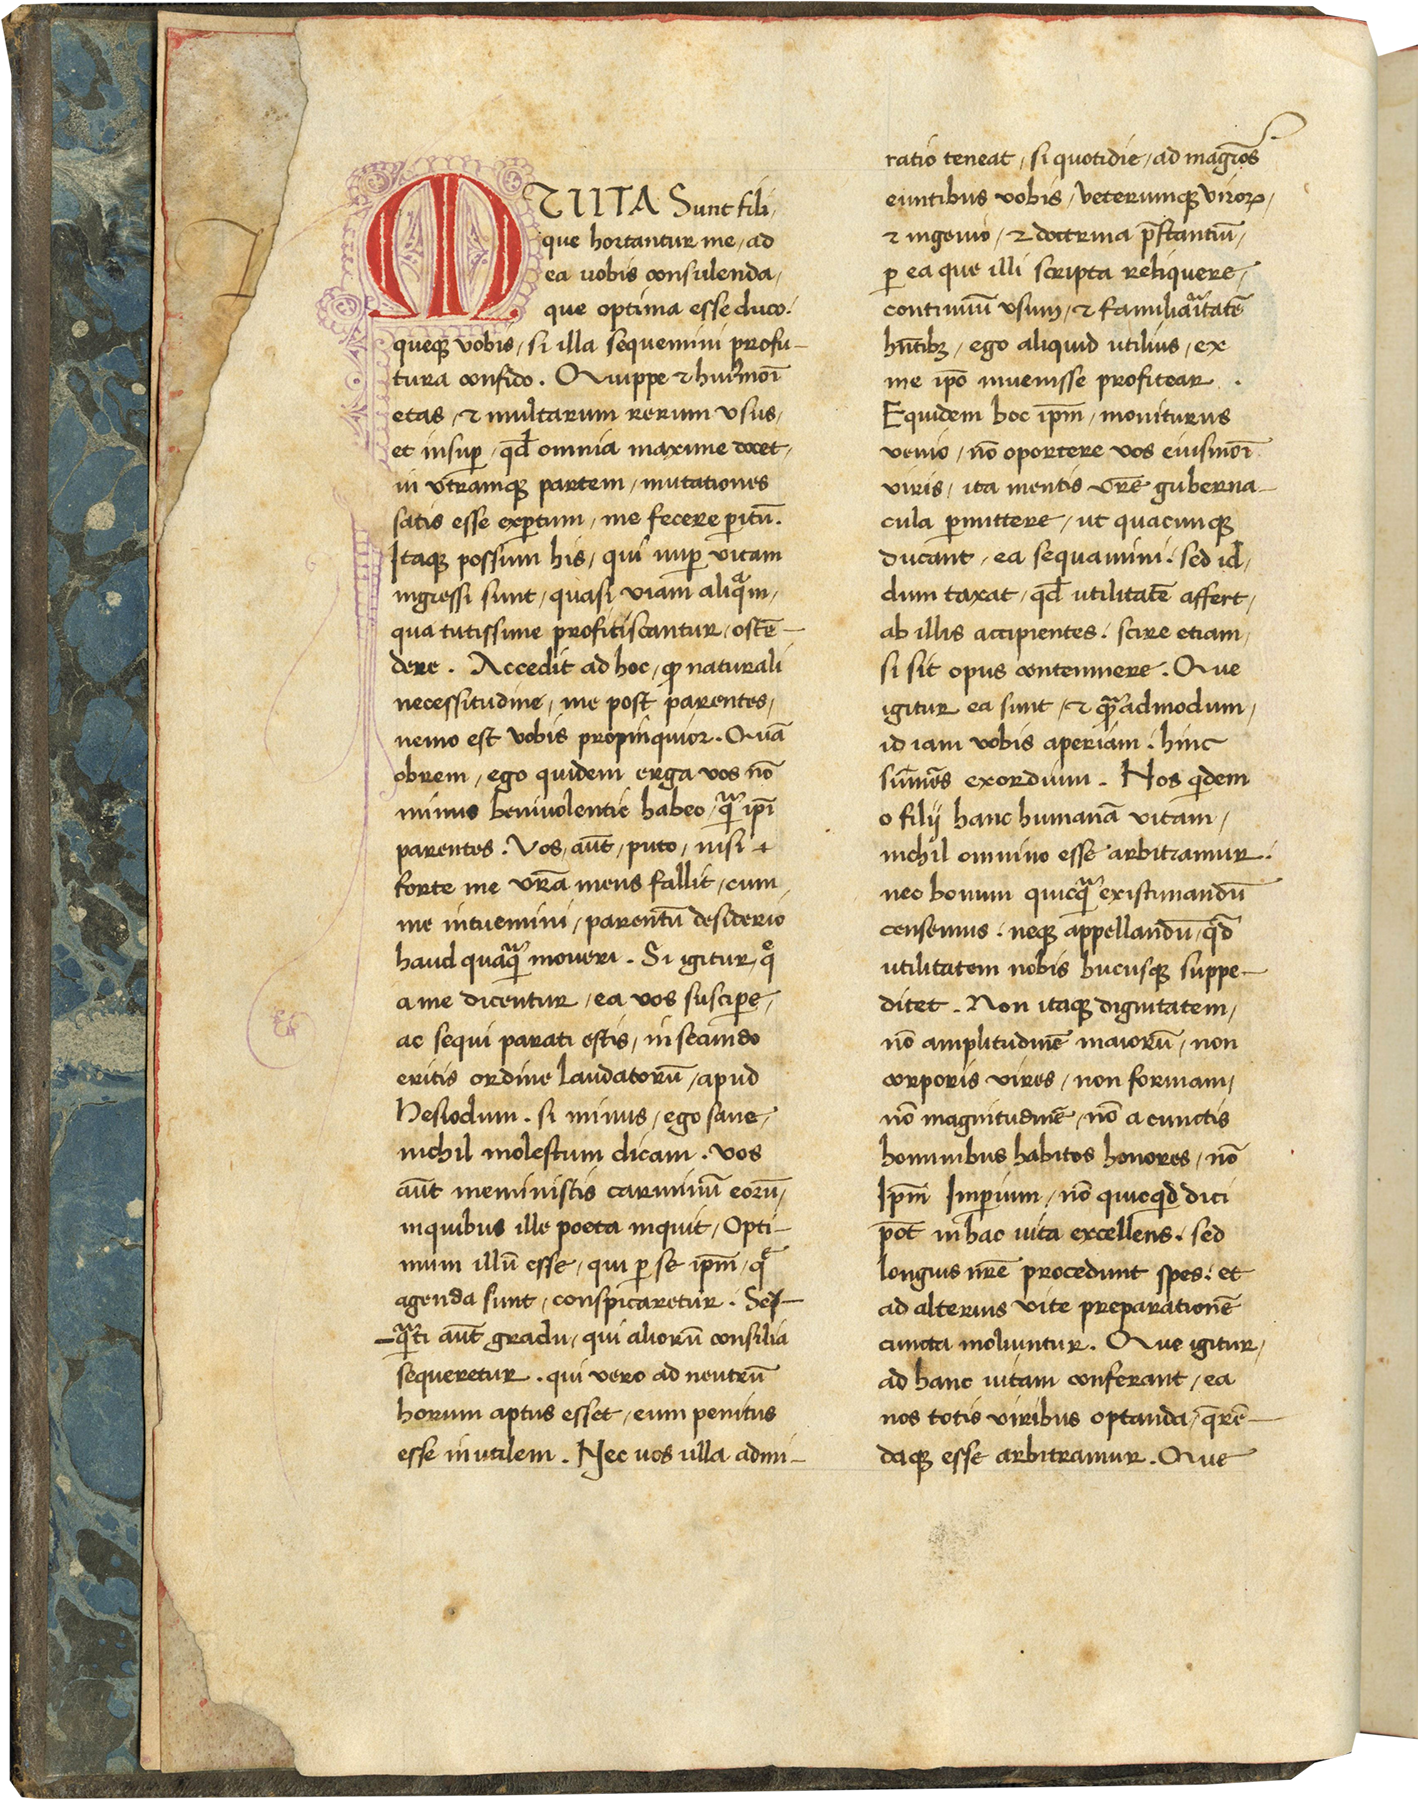 MULTA Sunt fili,
que hortantur me, ad
ea uobis consulenda,
que optima esse duco.
queq; vobis, si illa sequemini profu-
tura confido. Quippe & huiꝰmōi
etas, & multarum rerum vsus,
et insuꝑ, qd̄ omnia maxime docet,
in vtramq; partem, mutationes
satis esse exꝑtum, me fecere ꝑitū.
Itaq; possum his, qui nuꝑ vitam
ingressi sunt, quasi viam aliquam,
qua tutissime profitiscantur, ostē-
dere. Accedit ad hoc, ꝙ naturali
necessitudine, me post parentes,
nemo est vobis propinquior. Quā
obrem, ego quidem erga vos nō
minus beniuolentie habeo, qᵃm̄ ip̄i
parentes. Vos, aūt, puto, nisi
forte me vr̄a mens fallit, cum,
me intuemini, parentū desiderio
haud quaqᵃm̄ moueri. Si igitur, q̄
a me dicentur, ea vos susciꝑe,
ac sequi parati estis, in secundo
eritis ordine laudatorū, apud
Hesiodum. si minus, ego sane,
nichil molestum dicam. vos
aūt meministis carminū eorū,
inquibus ille poeta inquit, Opti-
mum illū esse, qui ꝑ se ip̄m, q̄
agenda sunt, conspicaretur. Seſ-
-qᵃti aūt gradu, qui aliorū consilia
sequeretur. qui vero ad neutrū
horum aptus esset, eum penitus
esse inutilem. Nec uos ulla admi-
ratio teneat, si quotidie, ad magr̄os
euntibus vobis, veterumq; viroꝝ,
& ingenio, & doctrina p̄stantiū,
ꝑ ea que illi scripta reliquere,
continuū vsum, & familiaᵃitatē
hn̄tibꝫ, ego aliquid utilius, ex
me ip̄o inuenisse profitear.
Equidem hoc ip̄m, moniturus
venio, nō oportere vos eiusmōi
viris, ita mentis vr̄e guberna-
cula ꝑmittere, ut quacunq;
ducant, ea sequamini. sed id,
dum taxat, qd̄ utilitatē affert,
ab illis accipientes. scire etiam,
si sit opus contemnere. Que
igitur ea sunt, & quᵃadmodum,
id iam vobis aperiam. hinc
sumēs exordium. Nos qⁱdem
o filij hanc humanā vitam,
nichil omnino esse arbitramur.
nec bonum quicqᵃm̄ existimandū
censemus. neq; appellandū, qd̄
utilitatem nobis hucusq; suppe-
ditet. Non itaq; dignitatem,
nō amplitudinē maiorū, non
corporis vires, non formam,
nō magnitudinē, nō a cunctis
hominibus habitos honores, nō
Ip̄m Imꝑium, nō quicqd̄ dici
pōt in hac uita excellens. sed
longius nr̄e procedunt spes. et
ad alterius vite preparationē
cuncta moliuntur. Que igitur,
ad hanc uitam conferant, ea
nos totis viribus optanda, q̄rē-
daq; esse arbitramur. Que